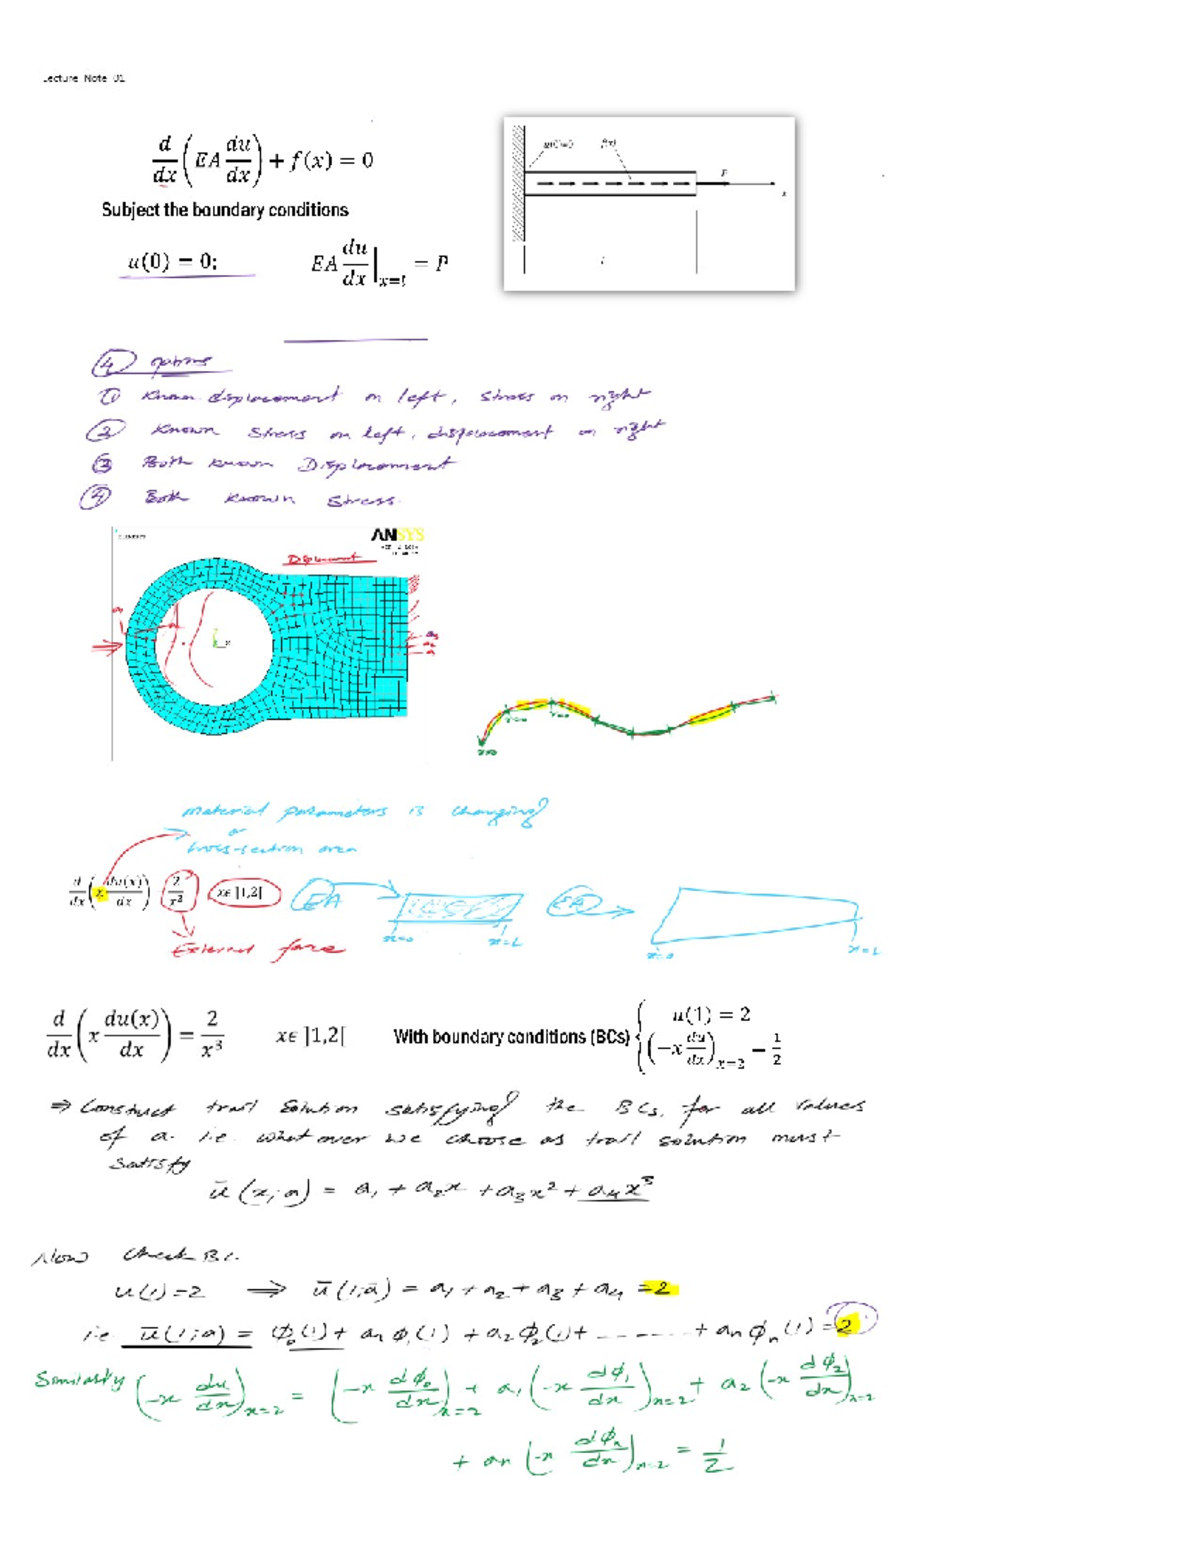 Lecture Note 01
d/dx (EA du/dx) + f(x) = 0
u(0)=0 f(x)
P
x
Subject the boundary conditions
u(0) = 0; EA du/dx |x=l = P
④ options
① Known displacement on left, stress on right
② Known stress on left, displacement on right
③ Both known Displacement
④ Both known stress.
ANSYS
Displacement
x=0
material parameters is changing
or
cross-section area
d/dx (x du(x)/dx) 2/x³ xϵ ]1,2[ EA EA
x=0 x=L x=0 x=L
External force
d/dx (x du(x)/dx) = 2/x³ xϵ ]1,2[ With boundary conditions (BCs) { u(1) = 2
(−x du/dx)x=2 = 1/2
⇒ Construct trail solution satisfying the BCs, for all values
of a. i.e. what ever we choose as trail solution must
satisfy
ū (x; a) = a₁ + a₂x + a₃x² + a₄x³
Now check B.C.
u(1) = 2 ⟹ ū(1; a) = a₁ + a₂ + a₃ + a₄ = 2
i.e ū(1; a) = ϕ₀(1) + a₁ ϕ₁(1) + a₂ ϕ₂(1) + ------- + an ϕn(1) = 2
Similarly (−x du/dx)x=2 = (−x dϕ₀/dx)x=2 + a₁ (−x dϕ₁/dx)x=2 + a₂ (−x dϕ₂/dx)x=2
+ an (−x dϕn/dx)x=2 = 1/2